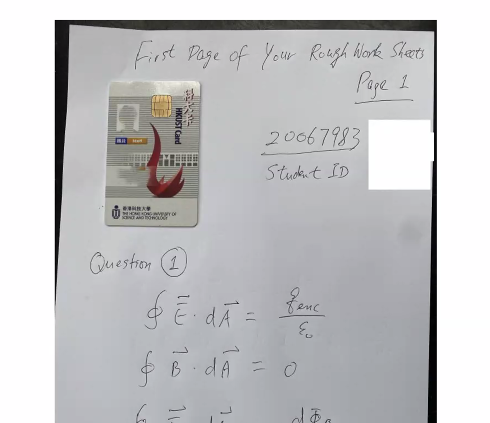 First Page of Your Rough Work Sheets
Page 1
HKUST Card
Staff
香港科技大學
THE HONG KONG UNIVERSITY OF
SCIENCE AND TECHNOLOGY
20067983
Student ID
Question ①
∮ E⃗ · dA⃗ = q_enc / ε₀
∮ B⃗ · dA⃗ = 0